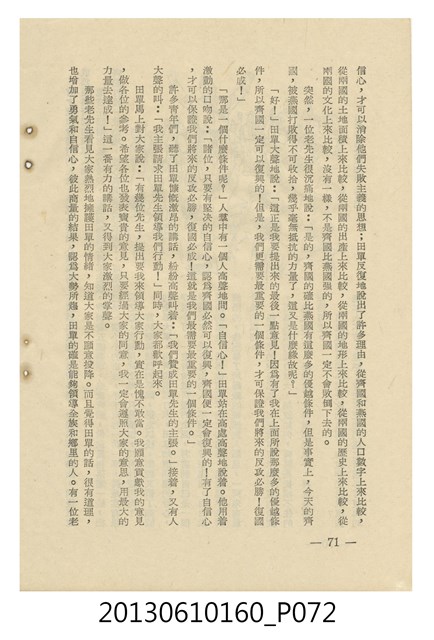 信心,才可以消除他們失敗主義的思想;田單反復地說出了許多理由,從齊國和燕國的人口數字上來比較,
從兩國的土地面積上來比較,從兩國的出產上來比較,從兩國的地形上來比較,從兩國的歷史上來比較,從
兩國的文化上來比較,沒有一樣,不是齊國比燕國強的,所以齊國一定不會敗倒下去的。
突然,一位老先生很沉痛地說:「是的,齊國的確比燕國有這麼多的優越條件,但是事實上,今天的齊
國,被燕國打敗得不可收拾,幾乎毫無抵抗的力量了,這又是什麼緣故呢?」
「好!」田單大聲地說:「這正是我要提出來的最後一點意見!因為有了我在上面所說那麼多的優越條
件,所以齊國一定可以復興的!但是,我們更需要最重要的一個條件,才可保證我們將來的反攻必勝!復國
必成!」
「那是一個什麼條件呢?」人羣中有一個人高聲地問。「自信心!」田單站在高處高聲地說着。他用着
激動的口吻說:「諸位,只要有堅决的自信心,認為齊國必然可以復興,齊國便一定會復興的!有了自信心
,才可以保證我們將來的反攻必勝,復國必成!這就是我們最需要最重要的一個條件。」
許多青年們,聽了田單慷慨激昂的講話,紛紛高聲叫着:「我們贊成田單先生的主張。」接着,又有人
大聲的叫:「我主張請求田單先生領導我們行動!」同時,大家都歡呼起來。
田單馬上對大家說:「有幾位先生,提出要我來領導大家行動,實在是愧不敢當。我願意貢獻我的意見
,做各位的參考。希望各位也發表寶貴的意見,只要經過大家的同意,我一定會遵照大家的意思,用最大的
力量去達成!」這一番有力的講話,又得到大家激烈的掌聲。
那些老先生看見大家熱烈地擁護田單的情緒,知道大家是不願意投降。而且覺得田單的話,很有道理,
也增加了勇氣和自信心,彼此商量的結果,認為大勢所趨,田單的確是能够領導全族和鄉里的人。有一位老
— 71 —
20130610160_P072